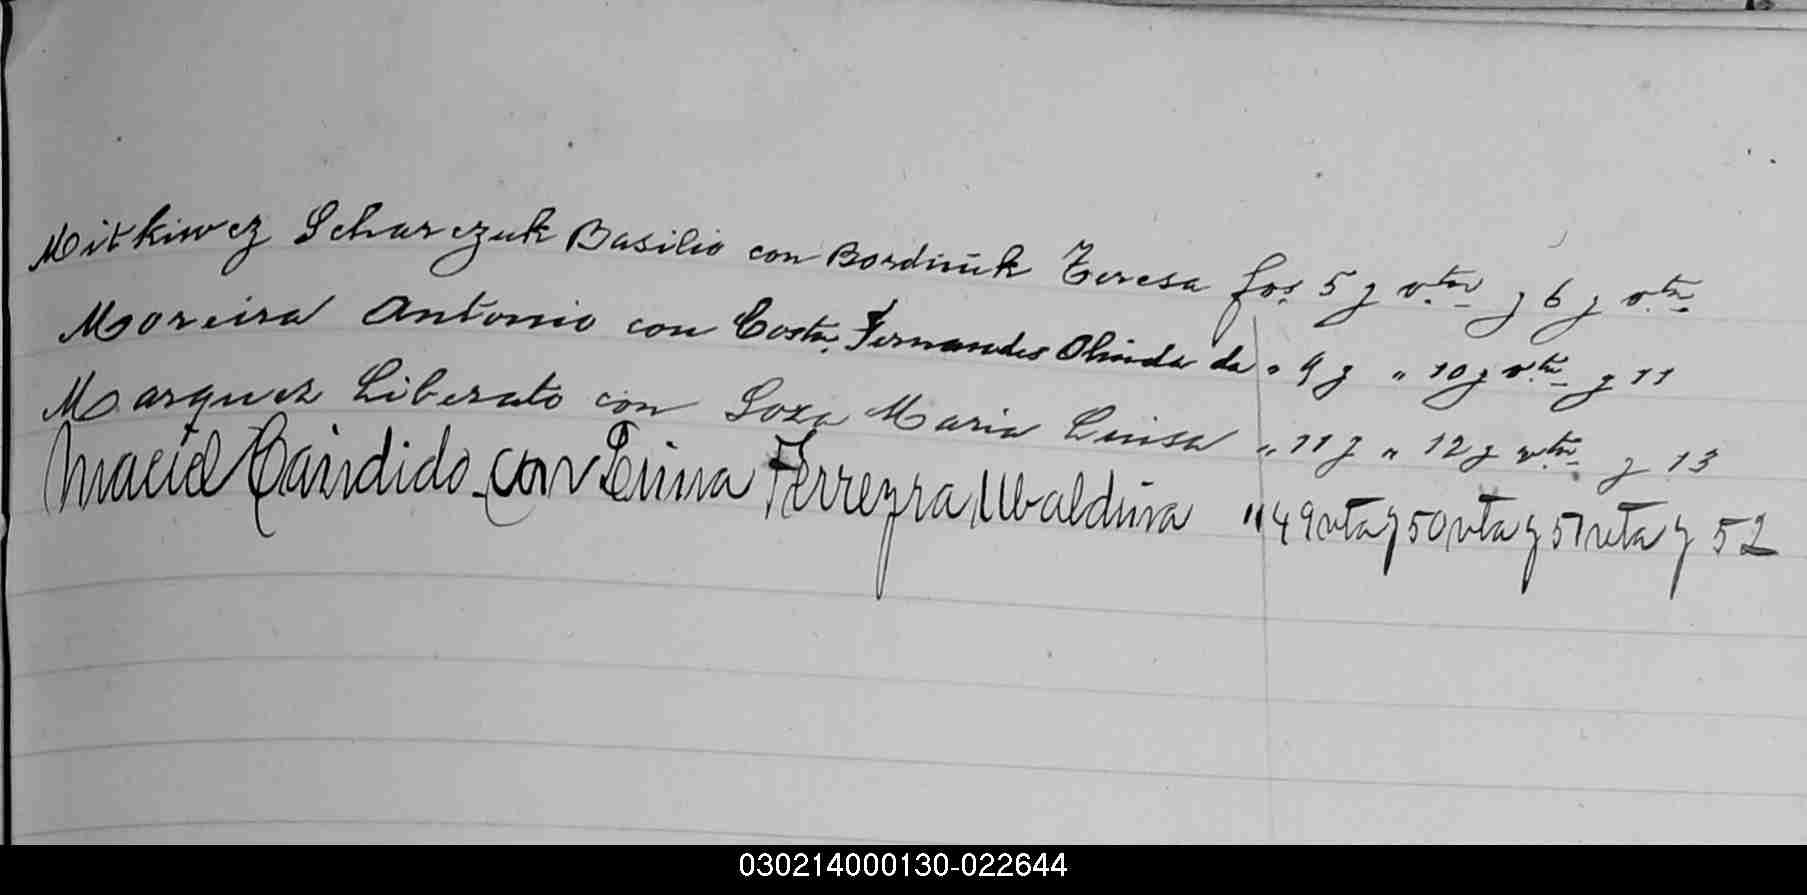 Mitkiwcz Scharczuk Basilio con Bordniuk Teresa fos. 5 y vta y 6 y vta
Moreira Antonio con Costa Fernandes Olinda da " 9 y " 10 y vta y 11
Marquez Liberato con Soza Maria Luisa " 11 y " 12 y vta y 13
Maciel Cándido con Lima Ferreyra Ubaldina " 49 vta y 50 vta y 51 vta y 52
030214000130-022644